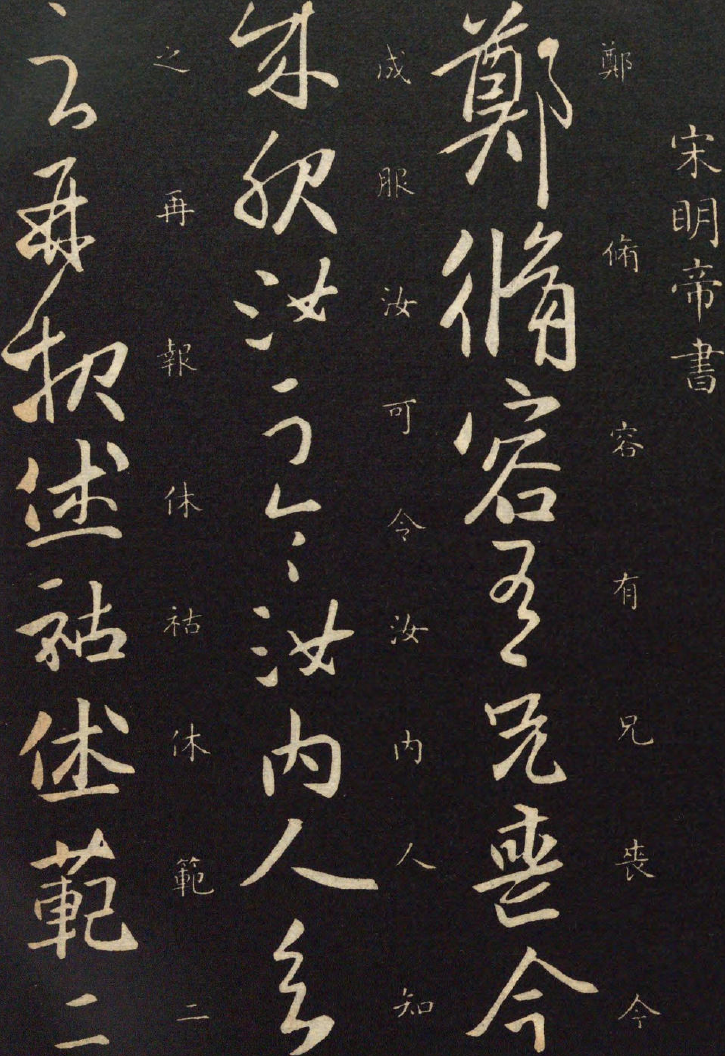 宋明帝書
鄭脩容有兄喪今
鄭脩容有兄喪今
成服汝可令汝内人知
成服汝可令汝内人知
之再報休祜休範二
之再報休祜休範二